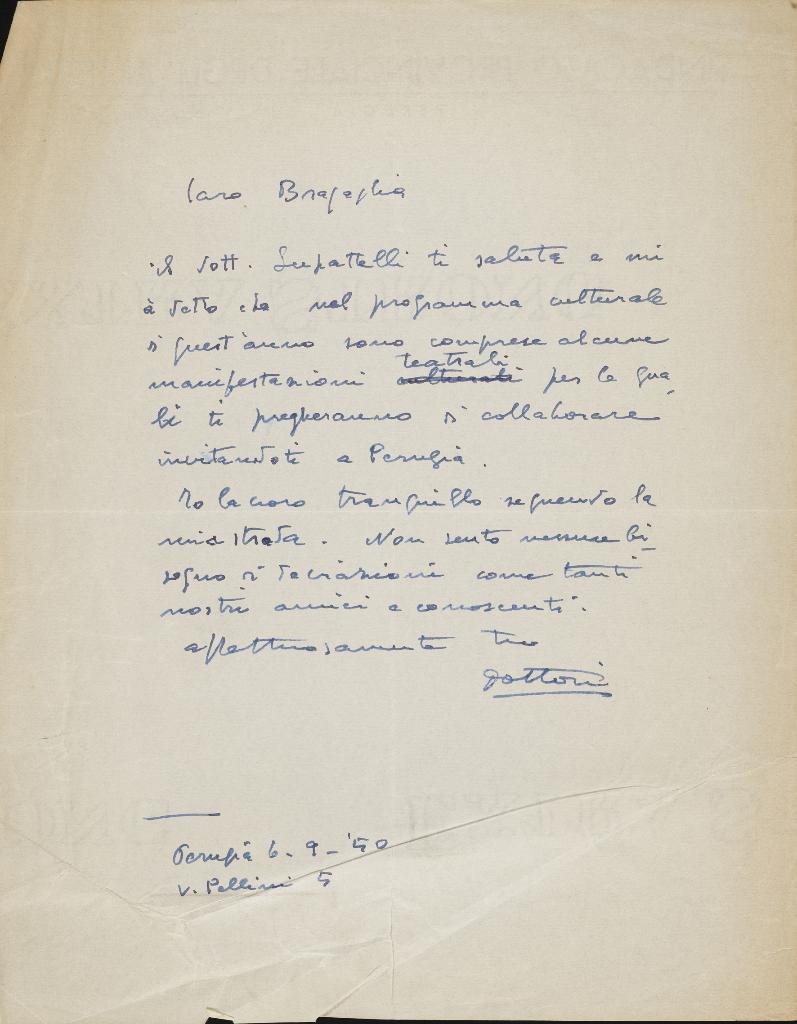 Caro Bragaglia
il dott. Lupattelli ti saluta e mi
à detto che nel programma culturale
di quest'anno sono comprese alcune
manifestazioni culturali teatrali per le qua
li ti pregheranno di collaborare
invitandoti a Perugia.
Io lavoro tranquillo seguendo la
mia strada. Non sento nessun bi-
sogno di deviazioni come tanti
nostri amici e conoscenti.
affettuosamente tuo
Dottori
Perugia 6-9-'50
V. Pellini 5